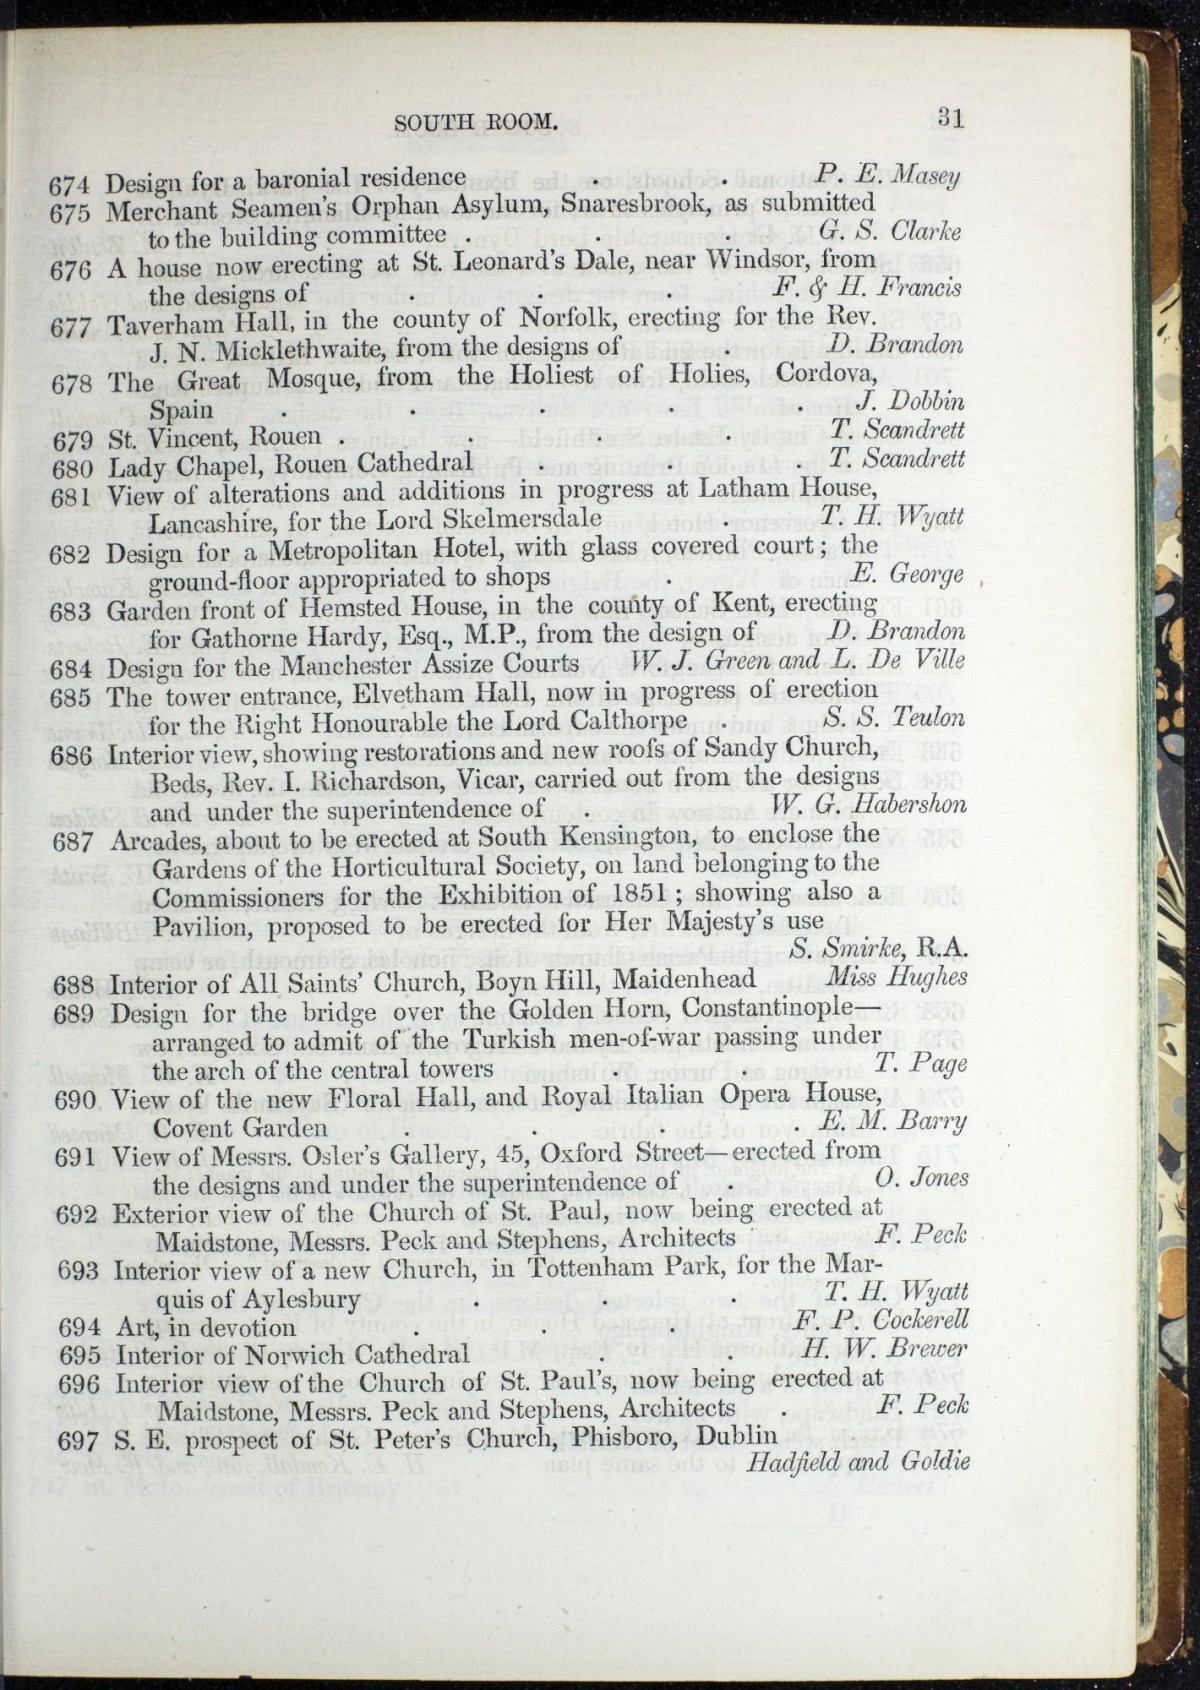 SOUTH ROOM. 31
674 Design for a baronial residence . . P. E. Masey
675 Merchant Seamen's Orphan Asylum, Snaresbrook, as submitted
to the building committee . . . G. S. Clarke
676 A house now erecting at St. Leonard's Dale, near Windsor, from
the designs of . . . F. & H. Francis
677 Taverham Hall, in the county of Norfolk, erecting for the Rev.
J. N. Micklethwaite, from the designs of . D. Brandon
678 The Great Mosque, from the Holiest of Holies, Cordova,
Spain . . . . . J. Dobbin
679 St. Vincent, Rouen . . . . T. Scandrett
680 Lady Chapel, Rouen Cathedral . . . T. Scandrett
681 View of alterations and additions in progress at Latham House,
Lancashire, for the Lord Skelmersdale . T. H. Wyatt
682 Design for a Metropolitan Hotel, with glass covered court; the
ground-floor appropriated to shops . E. George
683 Garden front of Hemsted House, in the county of Kent, erecting
for Gathorne Hardy, Esq., M.P., from the design of D. Brandon
684 Design for the Manchester Assize Courts W. J. Green and L. De Ville
685 The tower entrance, Elvetham Hall, now in progress of erection
for the Right Honourable the Lord Calthorpe . S. S. Teulon
686 Interior view, showing restorations and new roofs of Sandy Church,
Beds, Rev. I. Richardson, Vicar, carried out from the designs
and under the superintendence of . W. G. Habershon
687 Arcades, about to be erected at South Kensington, to enclose the
Gardens of the Horticultural Society, on land belonging to the
Commissioners for the Exhibition of 1851; showing also a
Pavilion, proposed to be erected for Her Majesty's use
S. Smirke, R.A.
688 Interior of All Saints' Church, Boyn Hill, Maidenhead Miss Hughes
689 Design for the bridge over the Golden Horn, Constantinople—
arranged to admit of the Turkish men-of-war passing under
the arch of the central towers . . T. Page
690 View of the new Floral Hall, and Royal Italian Opera House,
Covent Garden . . . . E. M. Barry
691 View of Messrs. Osler's Gallery, 45, Oxford Street—erected from
the designs and under the superintendence of . O. Jones
692 Exterior view of the Church of St. Paul, now being erected at
Maidstone, Messrs. Peck and Stephens, Architects F. Peck
693 Interior view of a new Church, in Tottenham Park, for the Mar-
quis of Aylesbury . . . T. H. Wyatt
694 Art, in devotion . . . F. P. Cockerell
695 Interior of Norwich Cathedral . . H. W. Brewer
696 Interior view of the Church of St. Paul's, now being erected at
Maidstone, Messrs. Peck and Stephens, Architects . F. Peck
697 S. E. prospect of St. Peter's Church, Phisboro, Dublin
Hadfield and Goldie